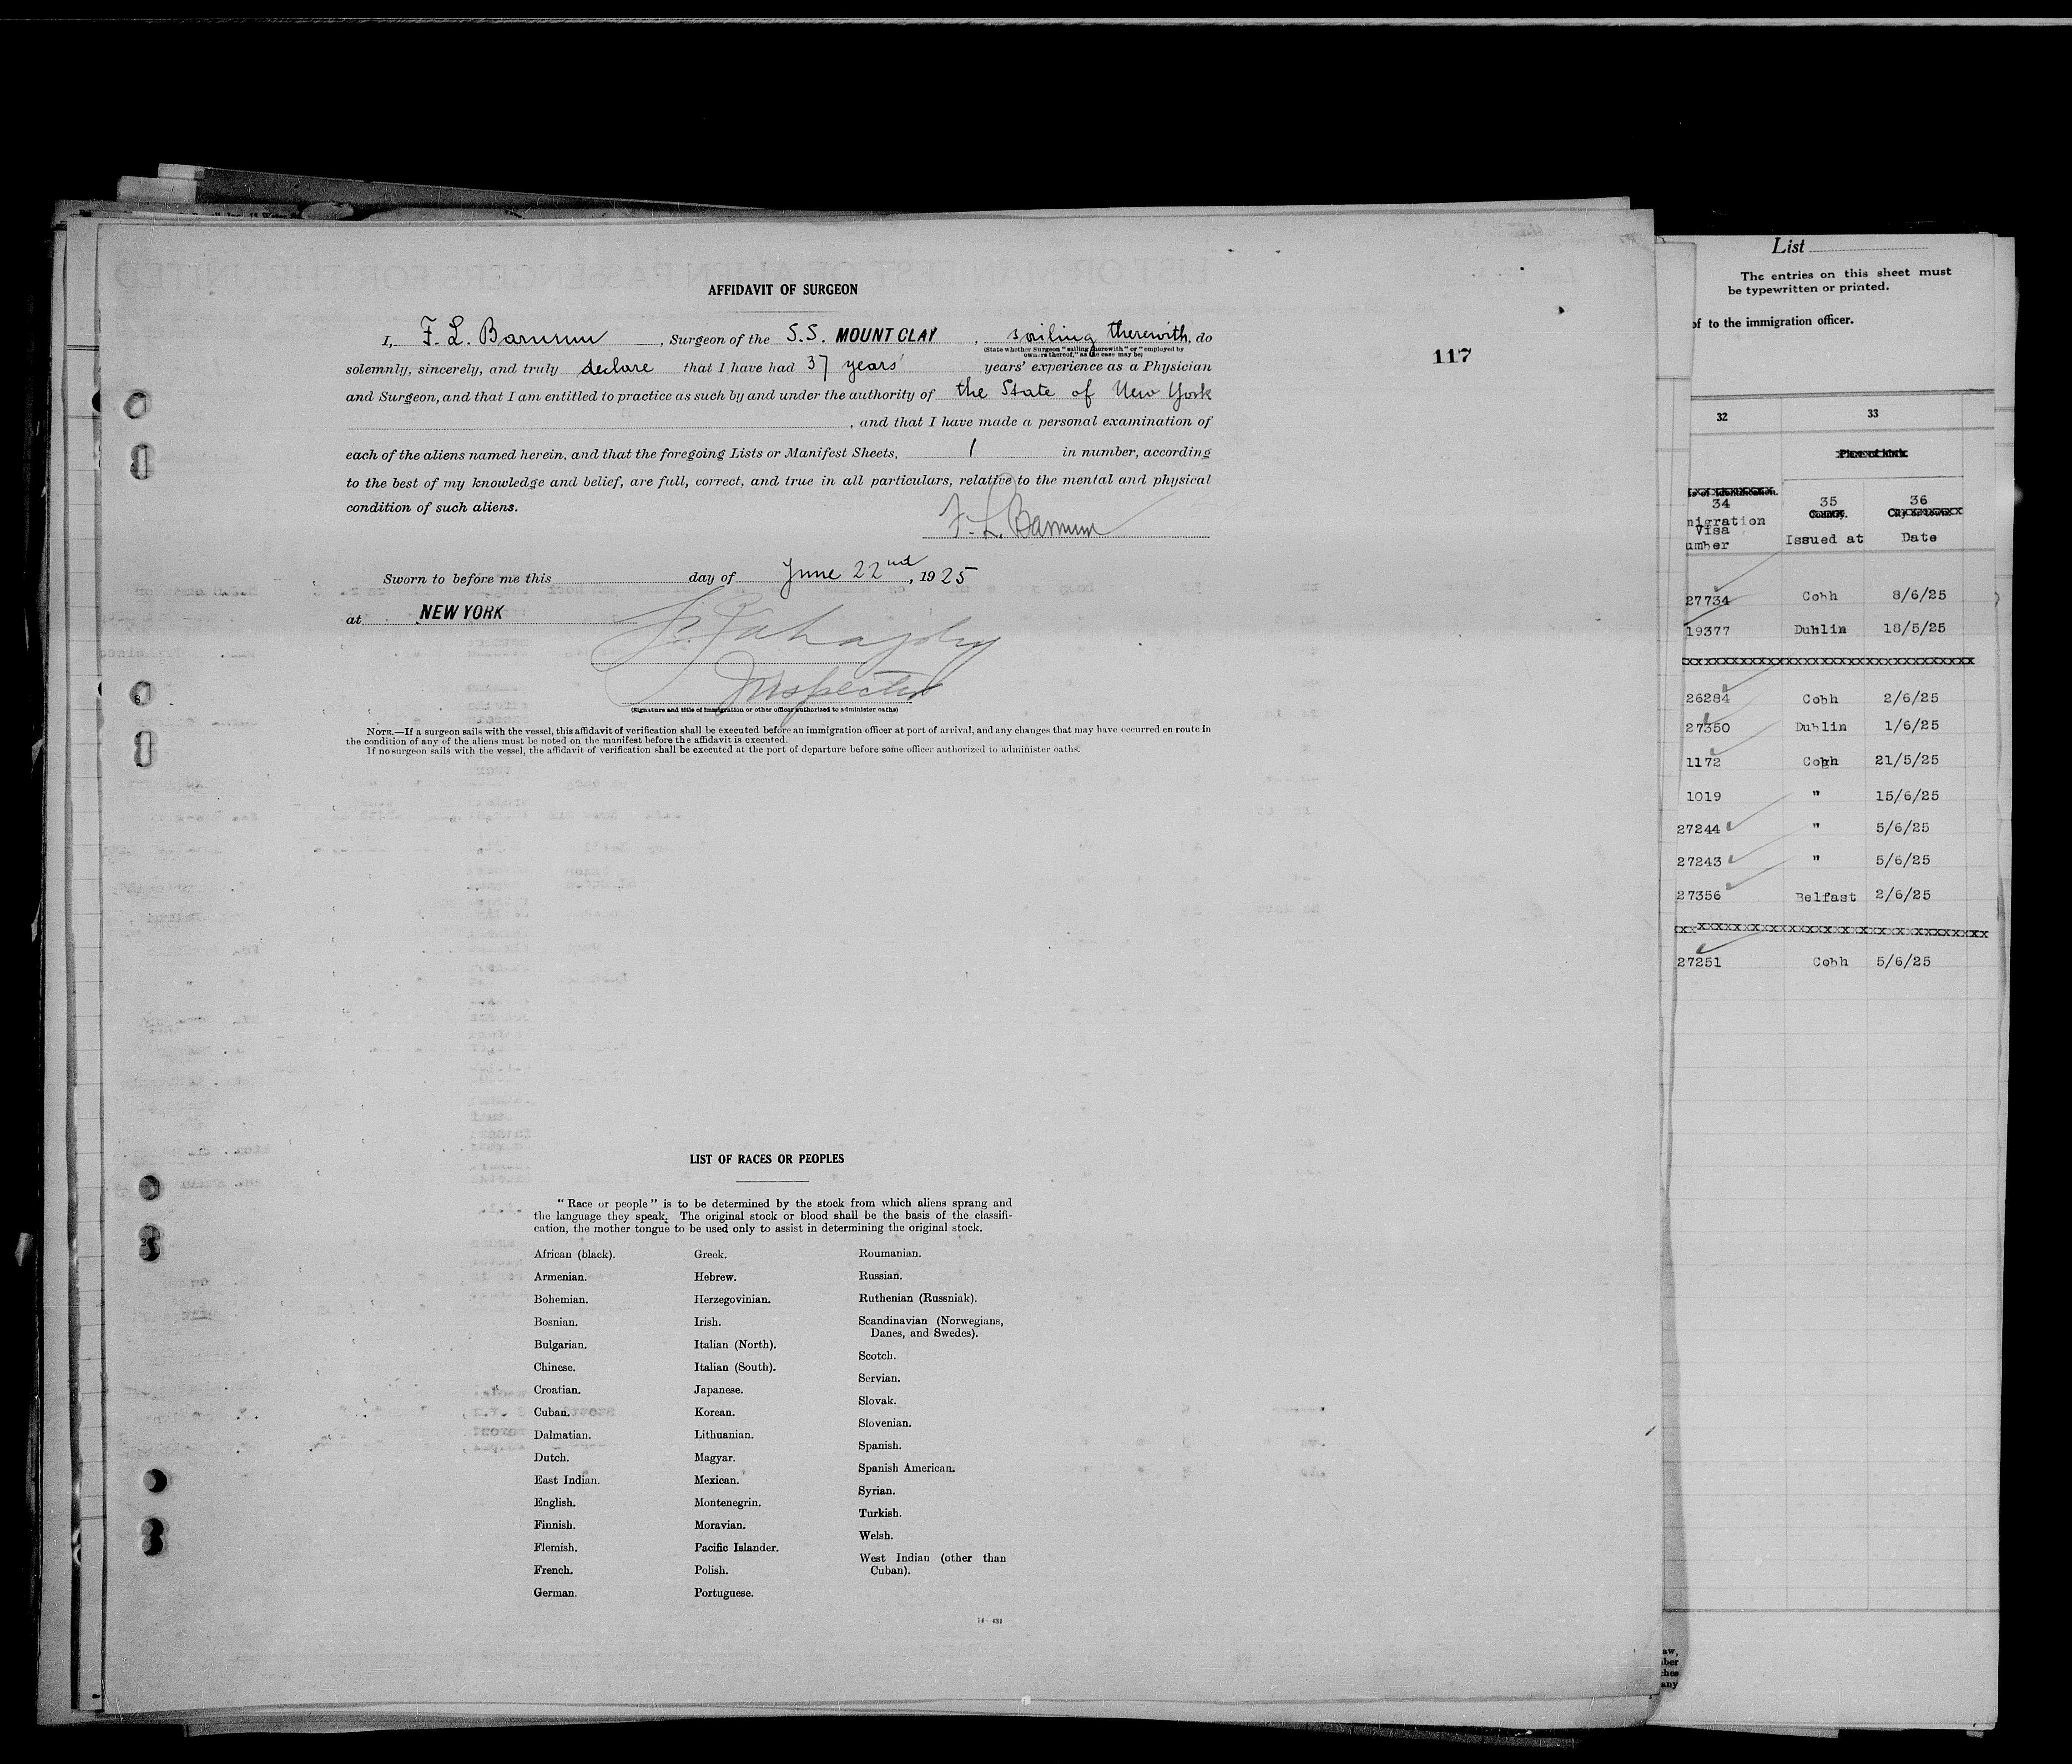 AFFIDAVIT OF SURGEON
I, F. L. Barnum, Surgeon of the S.S. MOUNT CLAY, sailing therewith, do
(State whether Surgeon "sailing therewith" or "employed by
owners thereof," as the case may be)
solemnly, sincerely, and truly declare that I have had 37 years' years' experience as a Physician
and Surgeon, and that I am entitled to practice as such by and under the authority of the State of New York
, and that I have made a personal examination of
each of the aliens named herein, and that the foregoing Lists or Manifest Sheets, 1 in number, according
to the best of my knowledge and belief, are full, correct, and true in all particulars, relative to the mental and physical
condition of such aliens.
F. L. Barnum
Sworn to before me this day of June 22nd, 1925
at NEW YORK
Inspector
(Signature and title of immigration or other officer authorized to administer oaths)
NOTE.—If a surgeon sails with the vessel, this affidavit of verification shall be executed before an immigration officer at port of arrival, and any changes that may have occurred en route in
the condition of any of the aliens must be noted on the manifest before the affidavit is executed.
If no surgeon sails with the vessel, the affidavit of verification shall be executed at the port of departure before some officer authorized to administer oaths.
117
LIST OF RACES OR PEOPLES
"Race or people" is to be determined by the stock from which aliens sprang and
the language they speak. The original stock or blood shall be the basis of the classifi-
cation, the mother tongue to be used only to assist in determining the original stock.
African (black).
Armenian.
Bohemian.
Bosnian.
Bulgarian.
Chinese.
Croatian.
Cuban.
Dalmatian.
Dutch.
East Indian.
English.
Finnish.
Flemish.
French.
German.
Greek.
Hebrew.
Herzegovinian.
Irish.
Italian (North).
Italian (South).
Japanese.
Korean.
Lithuanian.
Magyar.
Mexican.
Montenegrin.
Moravian.
Pacific Islander.
Polish.
Portuguese.
Roumanian.
Russian.
Ruthenian (Russniak).
Scandinavian (Norwegians,
Danes, and Swedes).
Scotch.
Servian.
Slovak.
Slovenian.
Spanish.
Spanish American.
Syrian.
Turkish.
Welsh.
West Indian (other than
Cuban).
14-431
List
The entries on this sheet must
be typewritten or printed.
of to the immigration officer.
32 33
34 35 36
migration
Visa
umber Issued at Date
27734 Cobh 8/6/25
19377 Dublin 18/5/25
xxxxxxxxxxxxxxxxxxxxxxxxxxxxx
26284 Cobh 2/6/25
27350 Dublin 1/6/25
1172 Cobh 21/5/25
1019 " 15/6/25
27244 " 5/6/25
27243 " 5/6/25
27356 Belfast 2/6/25
xxxxxxxxxxxxxxxxxxxxxxxxxxxxx
27251 Cobh 5/6/25